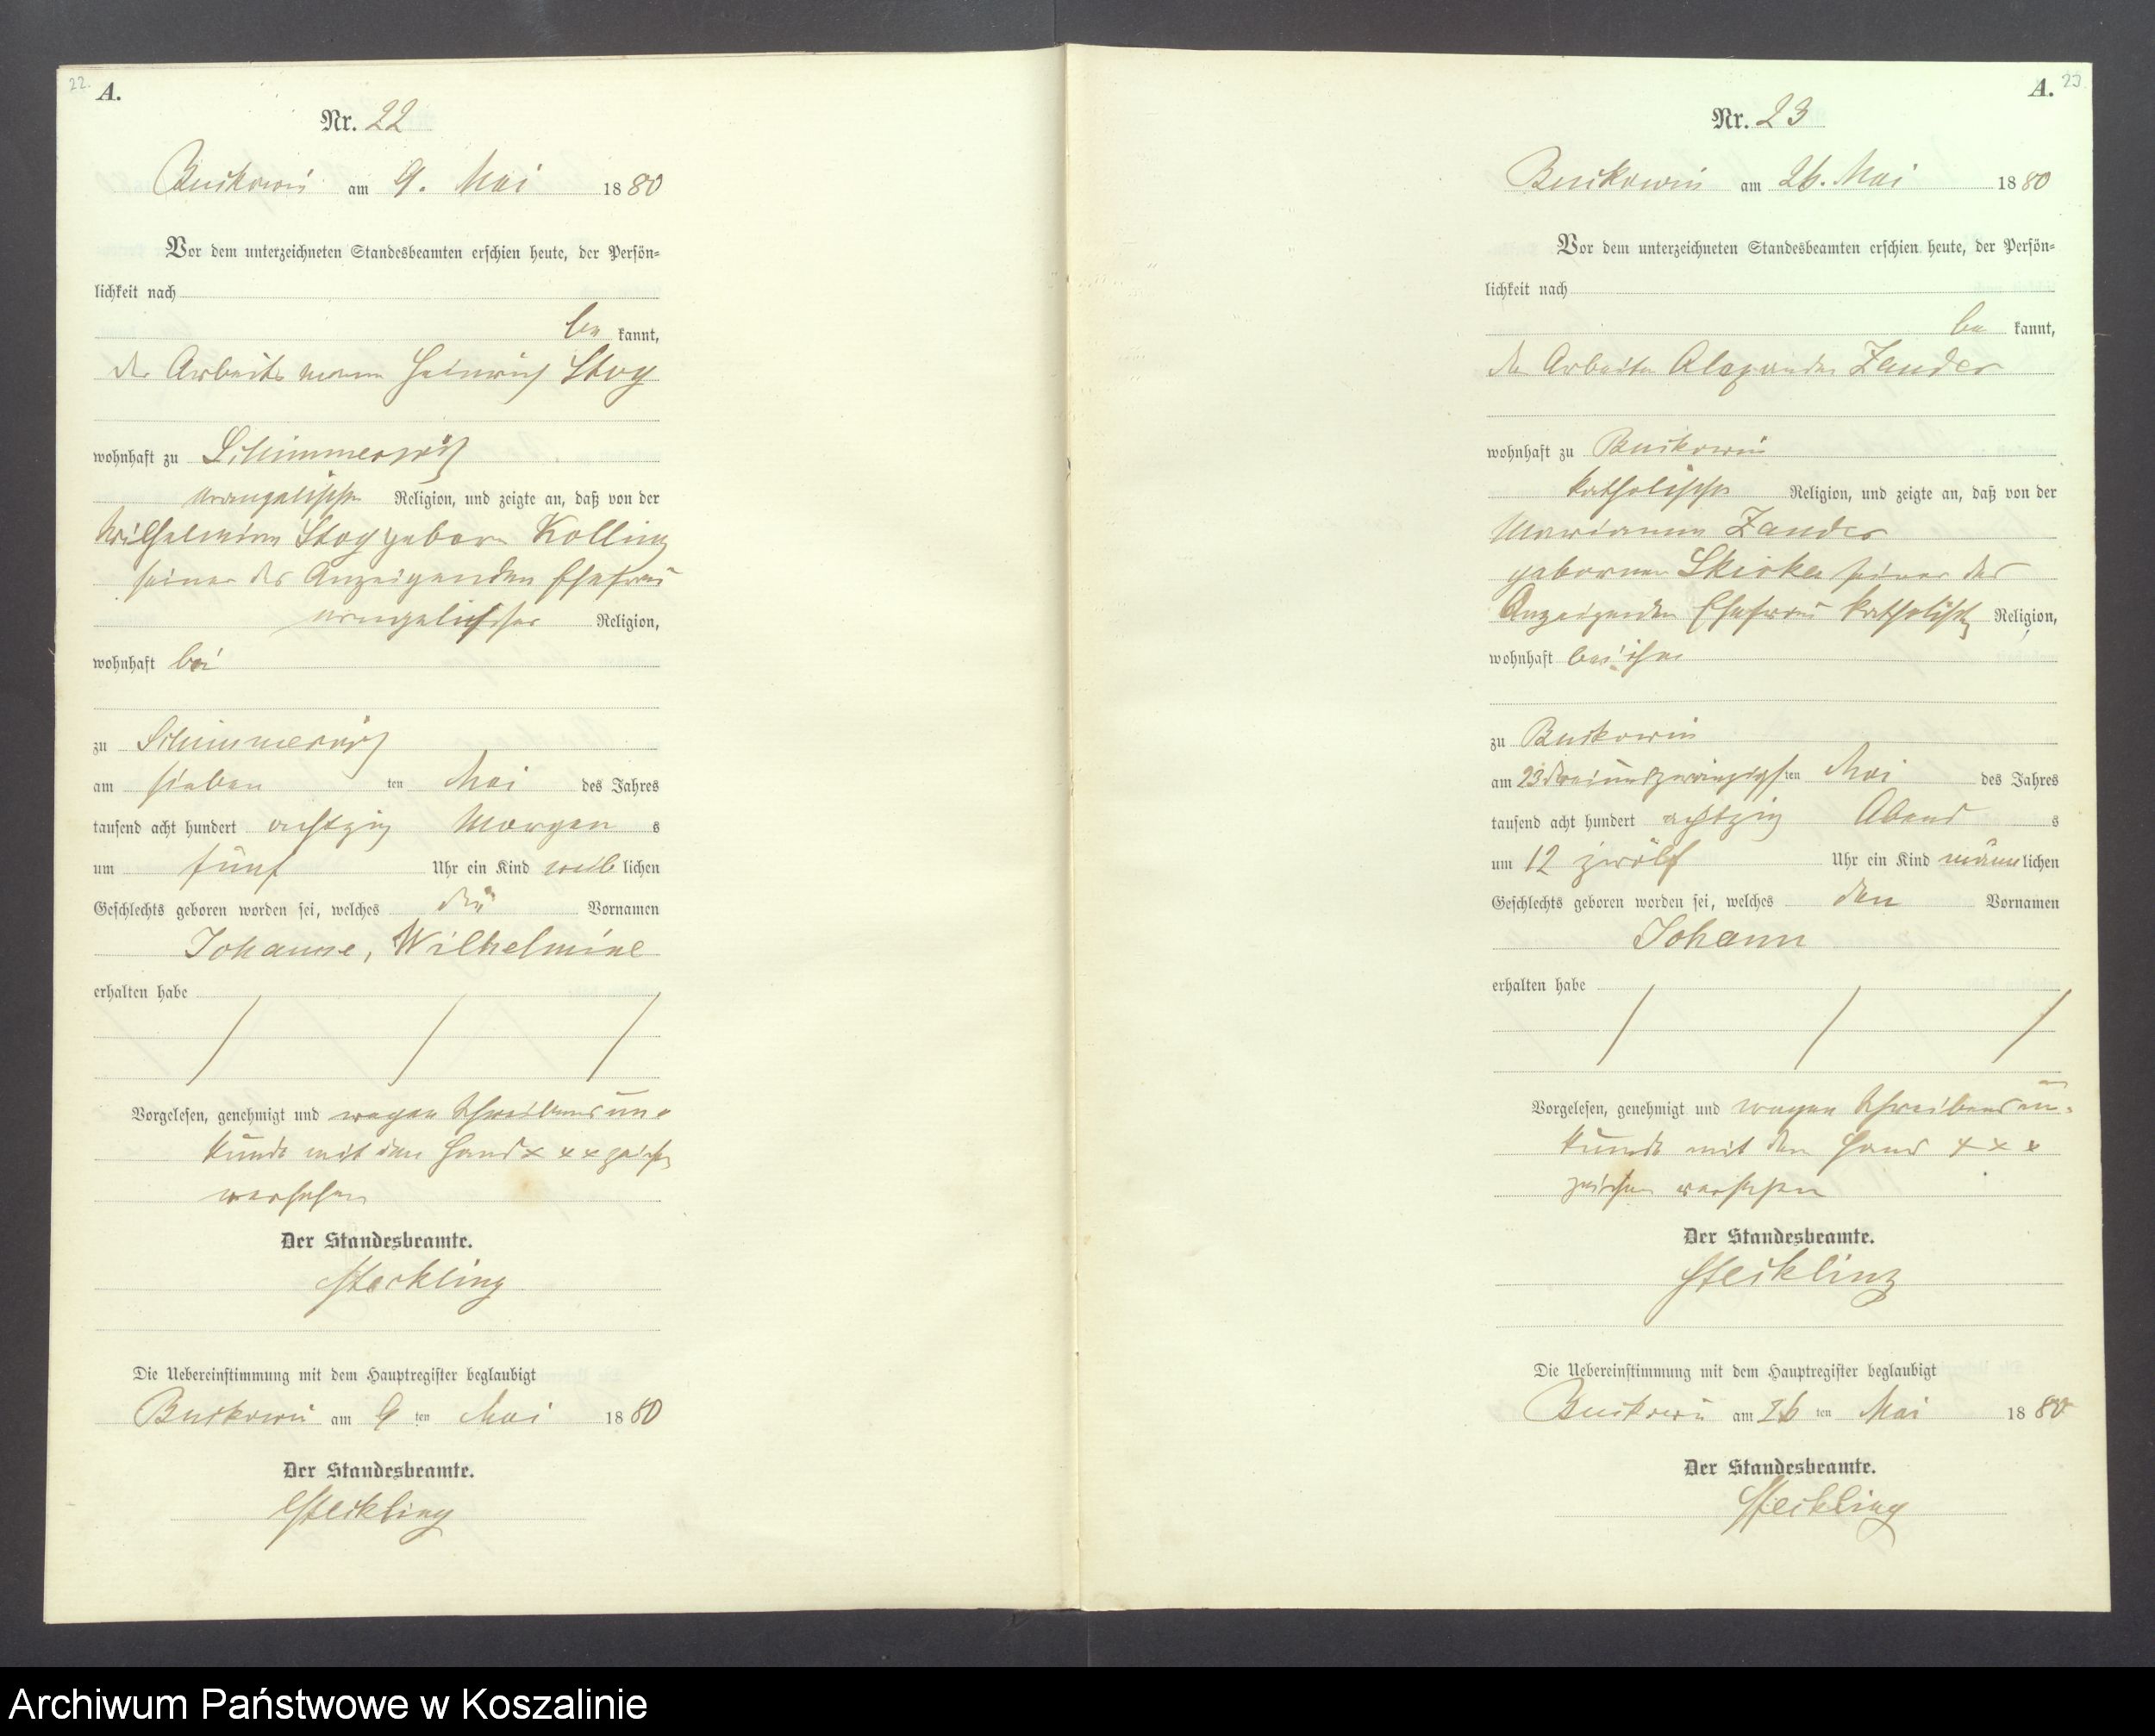 22.
A.
Nr. 22
Buckowin am 9. Mai 1880
Vor dem unterzeichneten Standesbeamten erschien heute, der Persön-
lichkeit nach
be kannt,
der Arbeitsmann Heinrich Stog
wohnhaft zu Schimmerwitz
evangelischer Religion, und zeigte an, daß von der
Wilhelmine Stog geborn Kolling
seiner des Anzeigenden Ehefrau
evangelischer Religion,
wohnhaft bei
zu Schimmerwitz
am sieben ten Mai des Jahres
tausend acht hundert achtzig Morgen s
um fünf Uhr ein Kind weib lichen
Geschlechts geboren worden sei, welches die Vornamen
Johanne, Wilhelmine
erhalten habe
Vorgelesen, genehmigt und wegen Schreibensun-
kunde mit den Hand x x x zeichen
versehen
Der Standesbeamte.
Steckling
Die Uebereinstimmung mit dem Hauptregister beglaubigt
Buckowin am 9 ten Mai 1880
Der Standesbeamte.
Steckling
A. 23
Nr. 23
Buckowin am 26. Mai 1880
Vor dem unterzeichneten Standesbeamten erschien heute, der Persön-
lichkeit nach
be kannt,
der Arbeiter Alexander Zander
wohnhaft zu Buckowin
katholischer Religion, und zeigte an, daß von der
Marianne Zander
geborner Skirka seiner des
Anzeigenden Ehefrau katholisch Religion,
wohnhaft bei ihm
zu Buckowin
am 23 dreiundzwanzigsten Mai des Jahres
tausend acht hundert achtzig Abend s
um 12 zwölf Uhr ein Kind männlichen
Geschlechts geboren worden sei, welches den Vornamen
Johann
erhalten habe
Vorgelesen, genehmigt und wegen Schreibensun-
kunde mit den Hand x x x
zeichen versehen
Der Standesbeamte.
Steckling
Die Uebereinstimmung mit dem Hauptregister beglaubigt
Buckowin am 26 ten Mai 1880
Der Standesbeamte.
Steckling
Archiwum Państwowe w Koszalinie